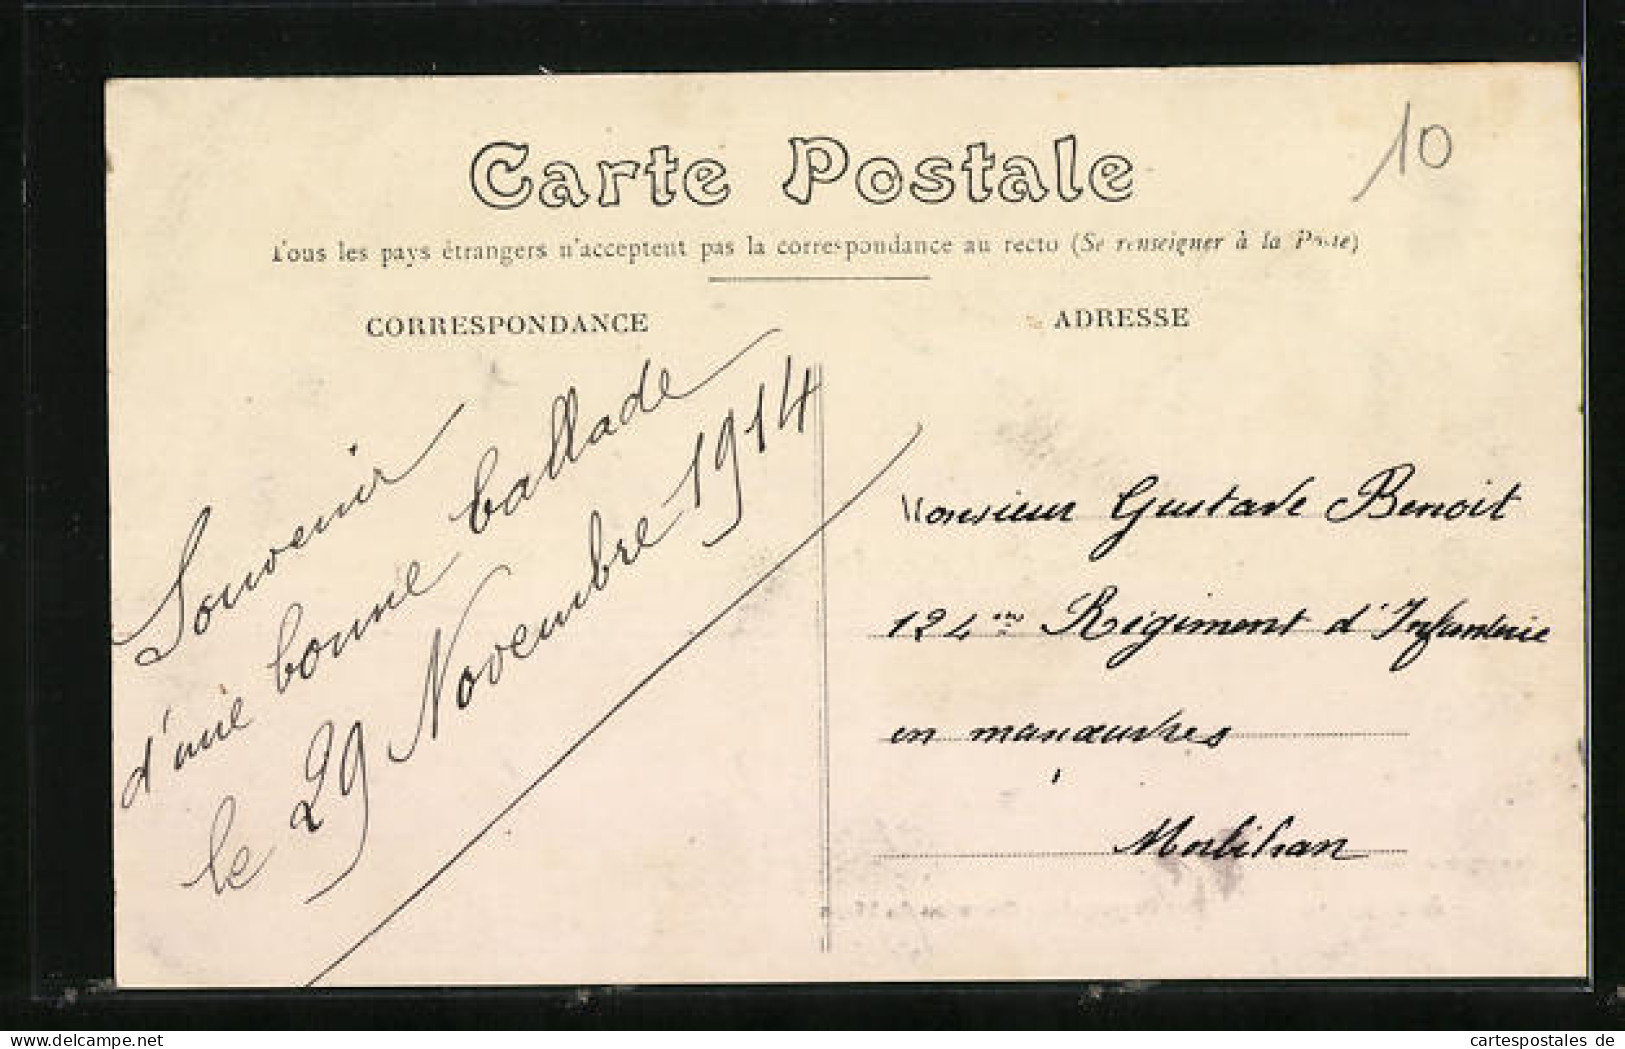 10
Carte Postale
Tous les pays étrangers n'acceptent pas la correspondance au recto (Se renseigner à la Poste)
CORRESPONDANCE
Souvenir
d'une bonne ballade
le 29 Novembre 1914
ADRESSE
Monsieur Gustave Benoit
124me Régiment d'Infanterie
en manœuvres
Morbihan
oldthing.com
cartespostales de